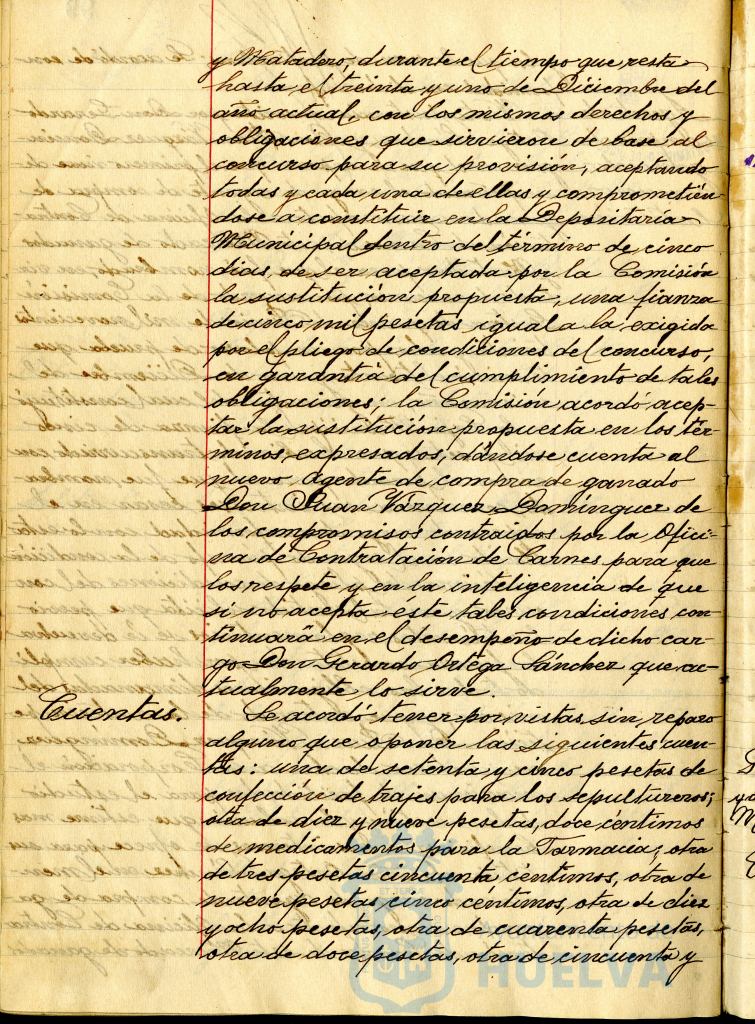 y Matadero, durante el tiempo que resta
hasta el treinta y uno de Diciembre del
año actual, con los mismos derechos y
obligaciones que sirvieron de base al
concurso para su provisión, aceptando
todas y cada una de ellas y comprometién-
dose a constituir en la Depositaría
Municipal dentro del término de cinco
dias, de ser aceptada por la Comisión
la sustitución propuesta, una fianza
de cinco mil pesetas igual a la exigida
por el pliego de condiciones del concurso,
en garantía del cumplimiento de tales
obligaciones; la Comisión acordó acep-
tar la sustitución propuesta en los tér-
minos expresados, dándose cuenta al
nuevo Agente de compra de ganado
Don Juan Vázquez Domínguez de
los compromisos contraidos por la Ofici-
na de Contratación de Carnes para que
los respete y en la inteligencia de que
si no acepta éste tales condiciones con-
tinuará en el desempeño de dicho car-
go Don Gerardo Ortega Sánchez que ac-
tualmente lo sirve.
Cuentas. Se acordó tener por vistas sin reparo
alguno que oponer las siguientes cuen-
tas: una de setenta y cinco pesetas de
confección de trajes para los sepultureros;
otra de diez y nueve pesetas, doce céntimos
de medicamentos para la Farmacia; otra
de tres pesetas cincuenta céntimos, otra de
nueve pesetas cinco céntimos, otra de diez
y ocho pesetas, otra de cuarenta pesetas,
otra de doce pesetas, otra de cincuenta y
HUELVA